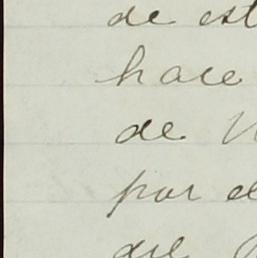 de est
hace
de
por e
del